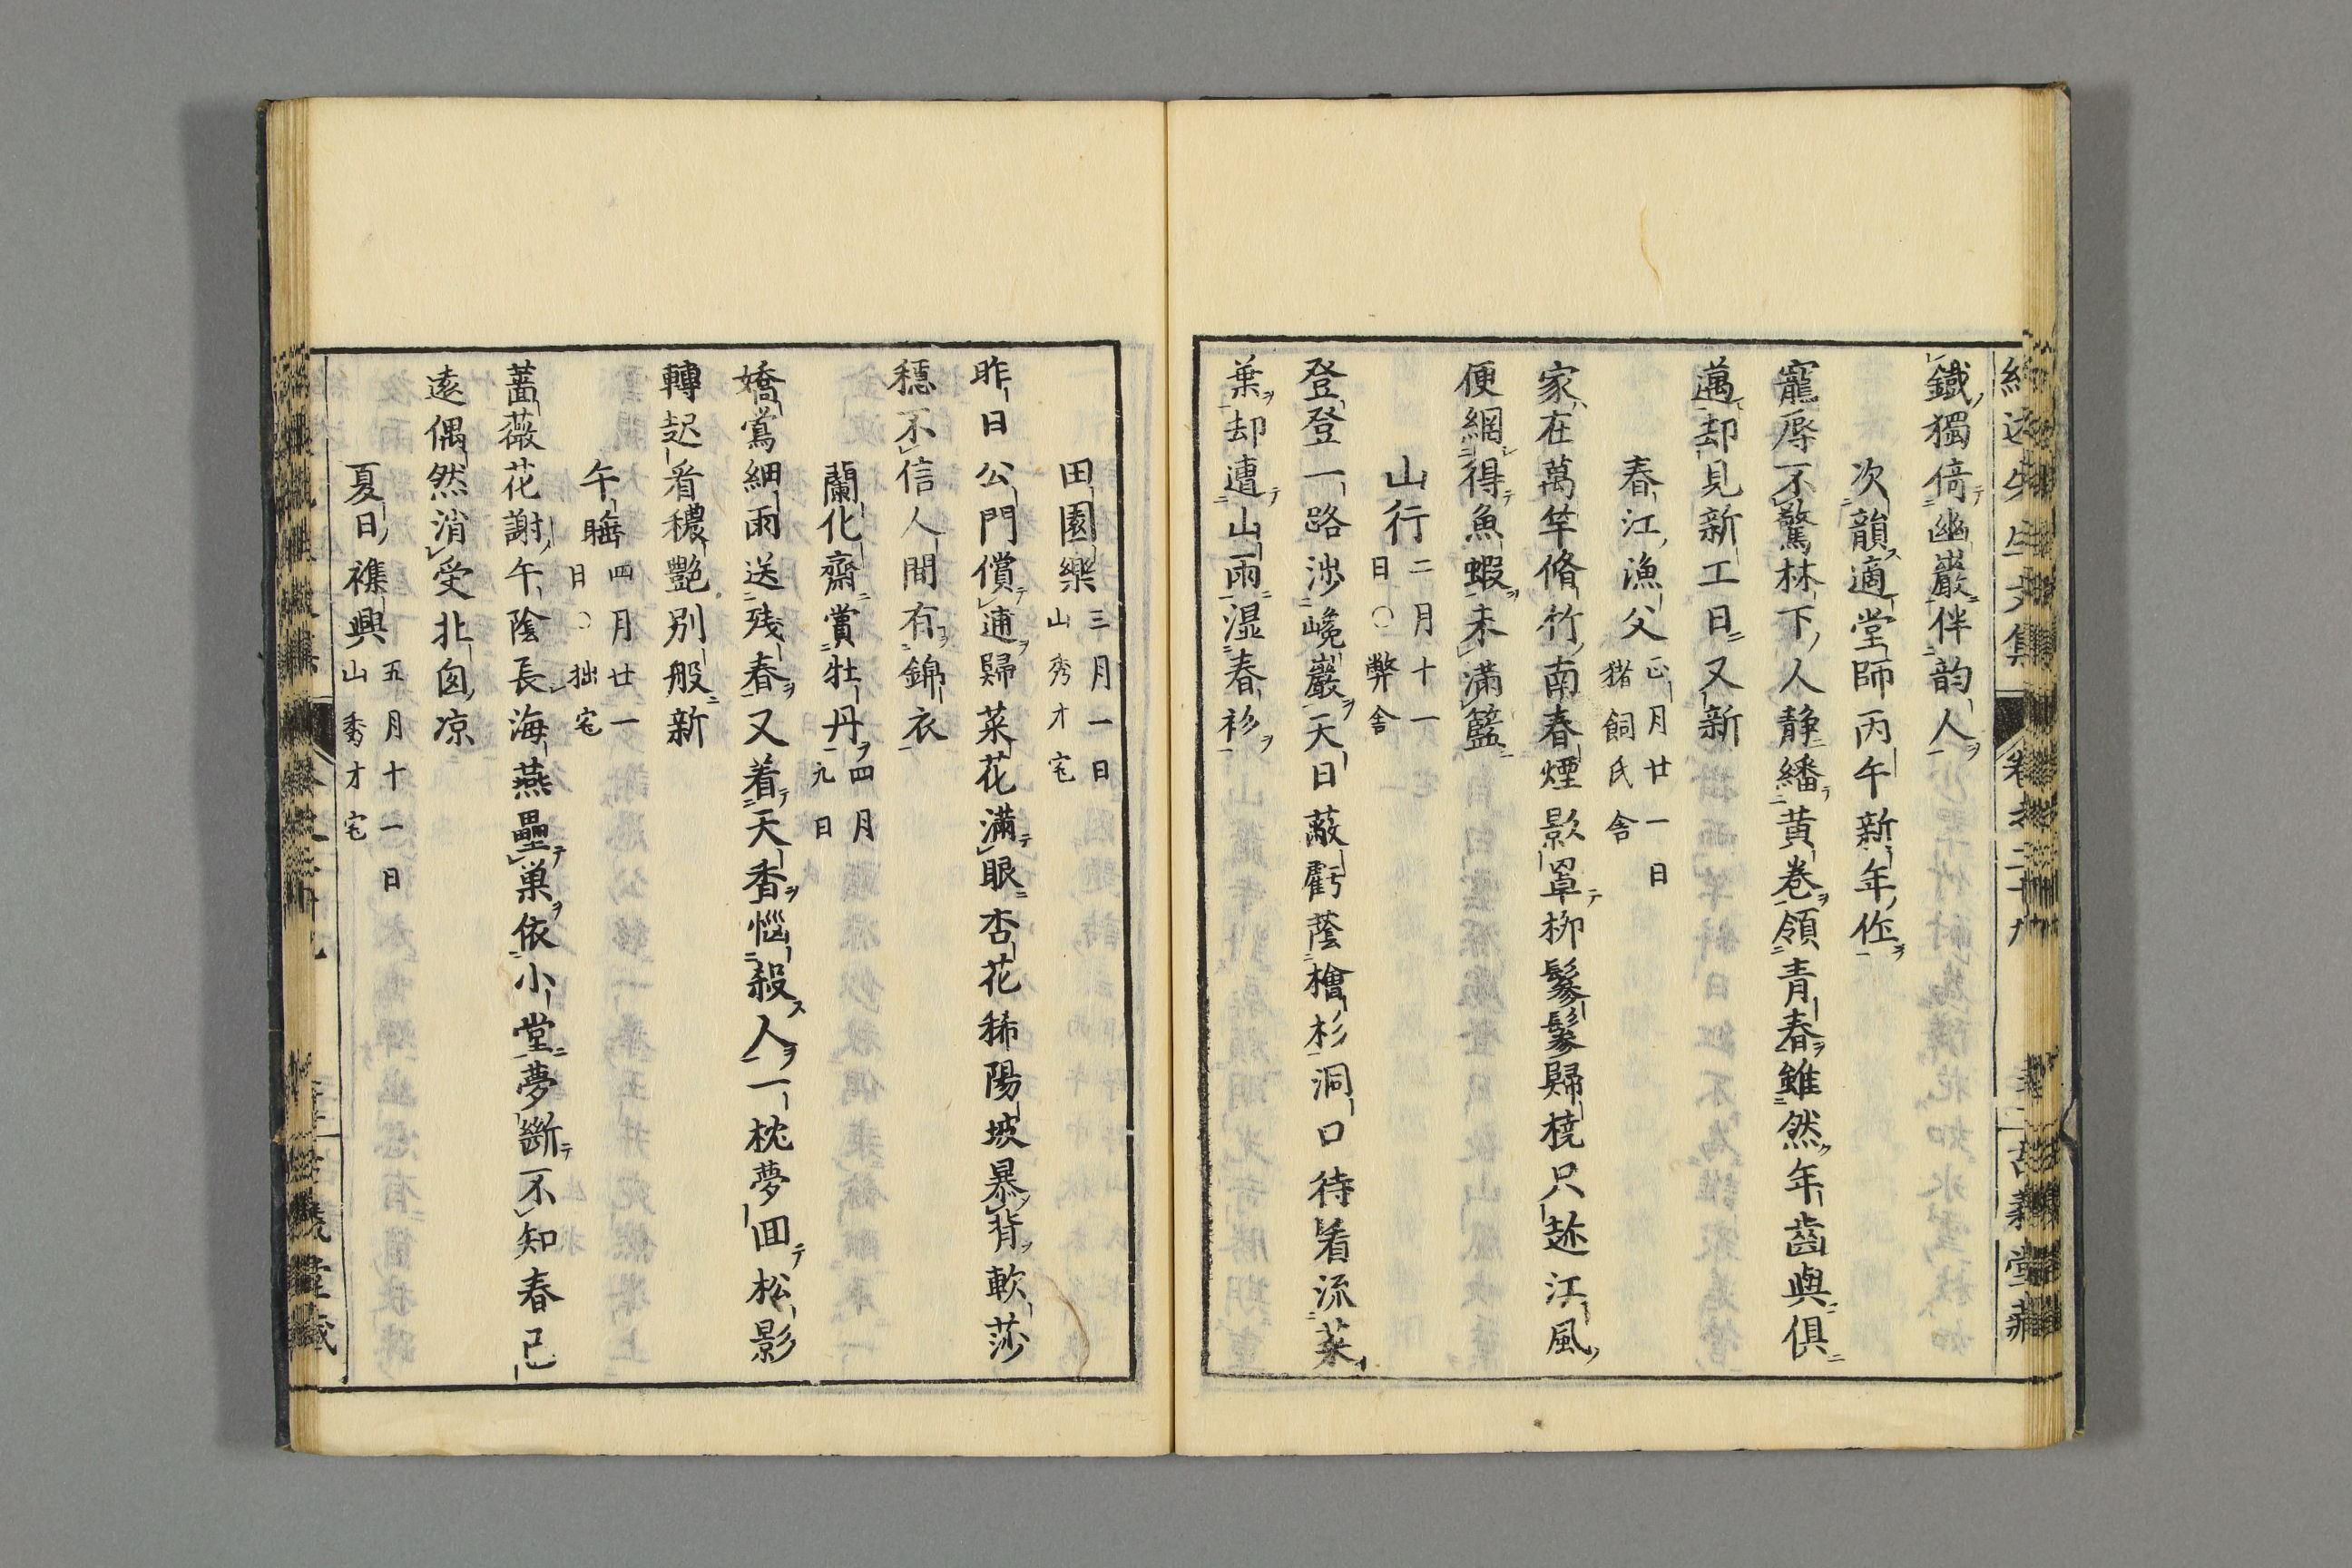 鐵獨倚幽巖伴韵人
次韻適堂師丙午新年作
寵辱不驚林下人靜繙黄卷領青春雖然年齒與俱
邁却見新工日又新
春江漁父正月廿一日猪飼氏舍
家在萬竿脩竹南春煙影罩柳鬖鬖歸橈只趂江風
便網得魚蝦未滿籃
山行二月十一日〇弊舍
登登一路渉巉巖天日蔽虧蔭檜杉洞口待看流菜
葉却遭山雨濕春衫
田園樂三月一日山秀才宅
昨日公門償逋歸菜花滿眼杏花稀陽坡暴背軟莎
穩不信人間有錦衣
蘭化齋賞牡丹四月九日
嬌鶯細雨送残春又着天香惱殺人一枕夢回松影
轉起看穠艶別般新
午睡四月廿一日〇拙宅
薔薇花謝午陰長海燕壘巣依小堂夢斷不知春已
遠偶然消受北囱凉
夏日襍興五月十一日山秀才宅